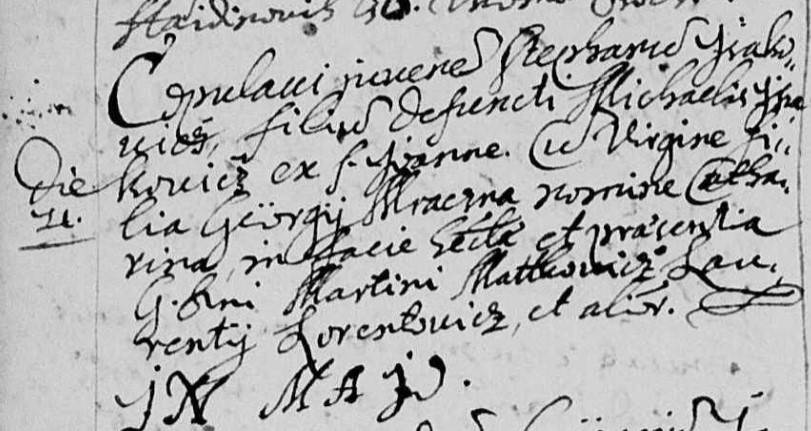 Copulavi juvenē Stephanū Jvako,,
vicz, filiū defuncti Michaelis Jva
Die kovicz ex S. Joanne. Cū Virgine fi,,
11. lia Georgÿ Mraczna nomine Catha,
rina, in facie Eccłæ et præsentia
G. Dni Martini Mattkovicz Lau,
rentÿ Lorentovicz, et alior.
IN MAJO.